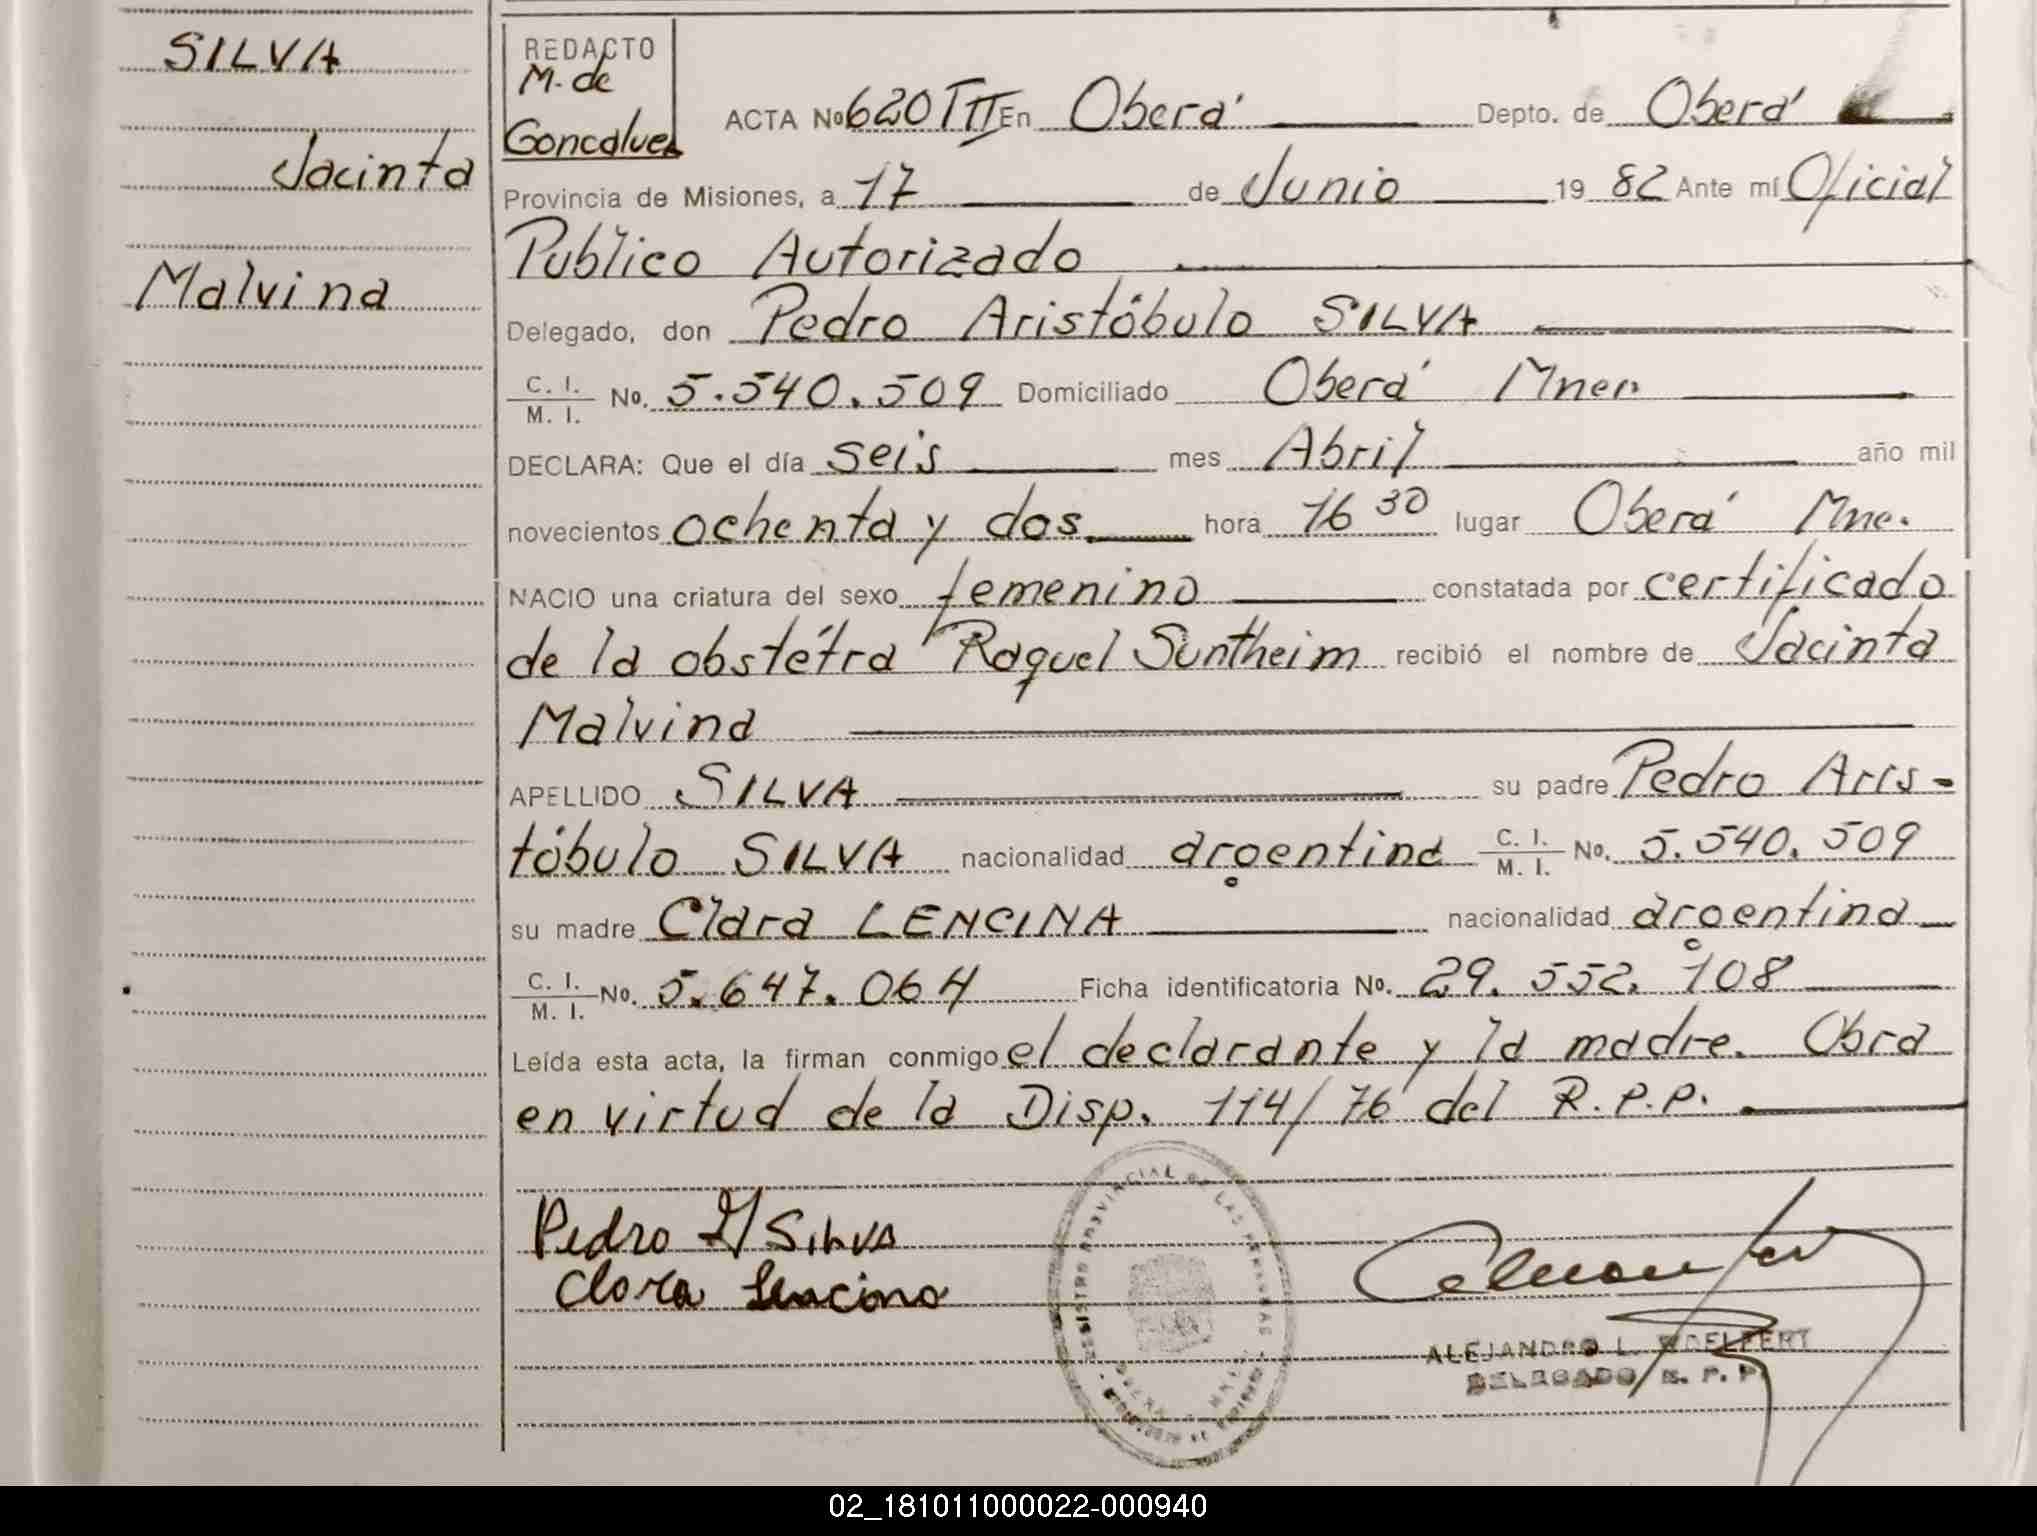 SILVA
Jacinta
Malvina
REDACTO
M. de
Goncalves
ACTA Nº 620 TII En Oberá Depto. de Oberá
Provincia de Misiones, a 17 de Junio 19 82 Ante mí Oficial
Publico Autorizado
Delegado, don Pedro Aristóbulo SILVA
C. I. / M. I. No. 5.540.509 Domiciliado Oberá Mnes.
DECLARA: Que el día seis mes Abril año mil
novecientos ochenta y dos hora 16 30 lugar Oberá Mnes.
NACIO una criatura del sexo femenino constatada por certificado
de la obstétra Raquel Suntheim recibió el nombre de Jacinta
Malvina
APELLIDO SILVA su padre Pedro Aris-
tóbulo SILVA nacionalidad argentina C. I. / M. I. No. 5.540.509
su madre Clara LENCINA nacionalidad argentina
C. I. / M. I. No. 5.647.064 Ficha identificatoria No. 29.552.108
Leída esta acta, la firman conmigo el declarante y la madre. Obra
en virtud de la Disp. 114/76 del R.P.P.
Pedro A SILVA
Clara Lencina
REGISTRO PROVINCIAL DE LAS PERSONAS
ALEJANDRO L.
DELEGADO R. P. P.
02_181011000022-000940